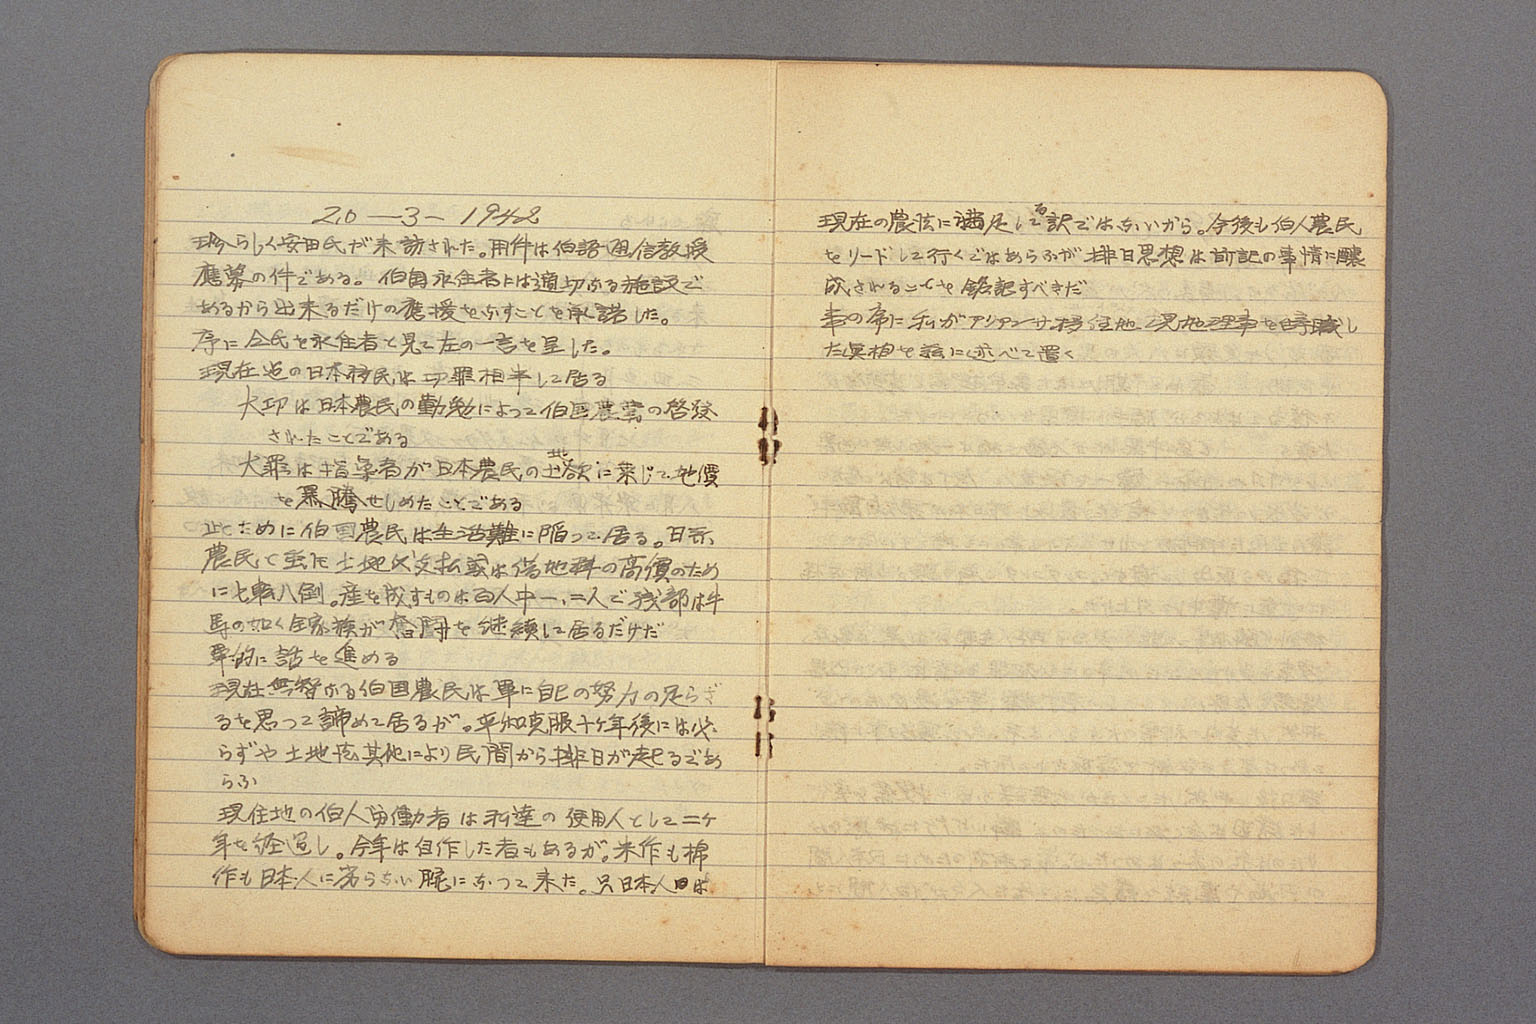 20-3-1942
珍らしく安田氏が来訪された。用件は伯語通信教授
應募の件である。伯国永住者には適切なる施設で
あるから出来るだけの應援をなすことを承諾した。
序に仝氏を永住者と見て左の一言を呈した。
現在迄の日本移民は功罪相半して居る
大功は日本農民の勤勉によつて伯国農業の啓発
されたことである
大罪は指導者が日本農民の土地欲に乗じて地價
を暴騰せしめたことである
此ために伯国農民は生活難に陥つて居る。日系
農民と雖も土地代支払或は借地料の高價のため
に七転八倒。産を成すものは百人中一、二人で残部は牛
馬の如く全家族が奮闘を継続して居るだけだ
単的に話を進める
現在無智なる伯国農民は単に自己の努力の足らざ
るを思つて諦めて居るが。平和克服十ケ年後には必
らずや土地法其他により民間から排日が起るであ
らふ
現住地の伯人労働者は私達の使用人として二ケ
年を経過し。今年は自作した者もあるが。米作も棉
作も日本人に劣らない腕になつて来た。只日本人は
現在の農法に満足して居る訳ではないから。今後も伯人農民
をリードして行くではあらふが排日思想は前記の事情に醸
成されることを銘記すべきだ
事の序に私がアリアンサ移住地の現地理事を辞職し
た真相を茲に述べて置く